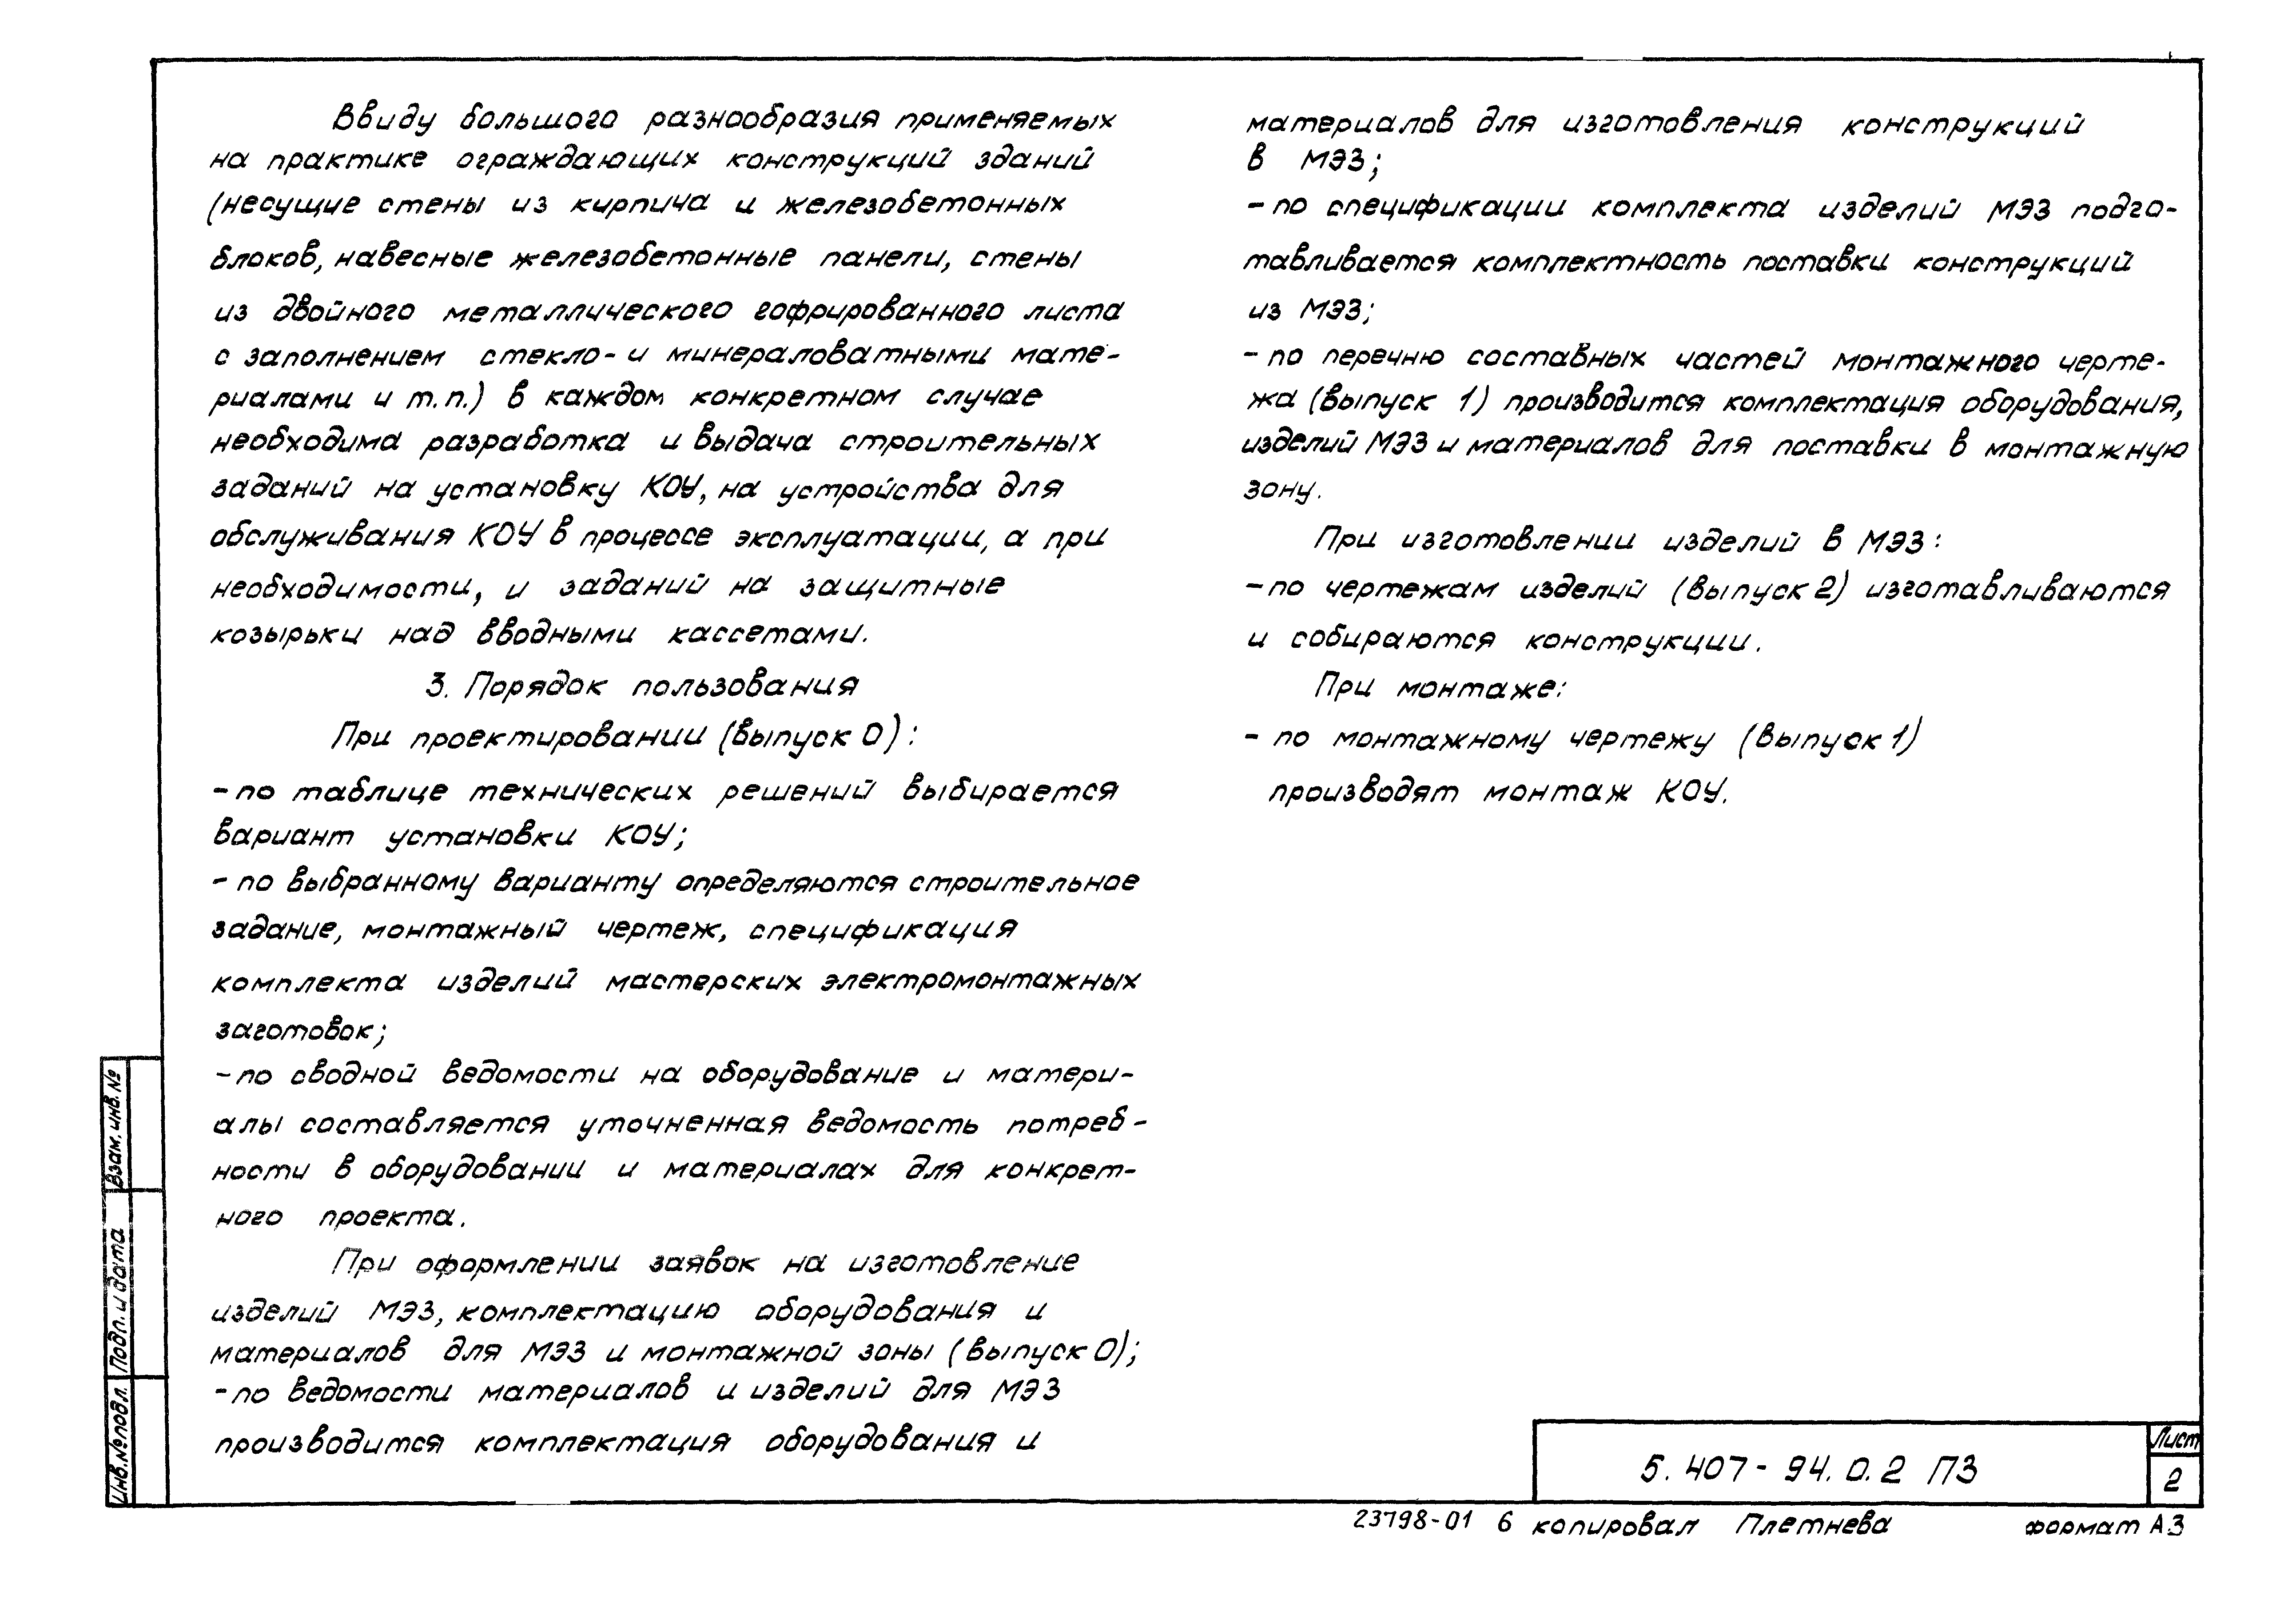 Ввиду большого разнообразия применяемых
на практике ограждающих конструкций зданий
(несущие стены из кирпича и железобетонных
блоков, навесные железобетонные панели, стены
из двойного металлического гофрированного листа
с заполнением стекло- и минераловатными мате-
риалами и т.п.) в каждом конкретном случае
необходима разработка и выдача строительных
заданий на установку КОУ, на устройства для
обслуживания КОУ в процессе эксплуатации, а при
необходимости, и заданий на защитные
козырьки над вводными кассетами.
3. Порядок пользования
При проектировании (выпуск 0):
- по таблице технических решений выбирается
вариант установки КОУ;
- по выбранному варианту определяются строительное
задание, монтажный чертеж, спецификация
комплекта изделий мастерских электромонтажных
заготовок;
- по сводной ведомости на оборудование и матери-
алы составляется уточненная ведомость потреб-
ности в оборудовании и материалах для конкрет-
ного проекта.
При оформлении заявок на изготовление
изделий МЭЗ, комплектацию оборудования и
материалов для МЭЗ и монтажной зоны (выпуск 0);
- по ведомости материалов и изделий для МЭЗ
производится комплектация оборудования и
материалов для изготовления конструкций
в МЭЗ;
- по спецификации комплекта изделий МЭЗ подго-
тавливается комплектность поставки конструкций
из МЭЗ;
- по перечню составных частей монтажного черте-
жа (выпуск 1) производится комплектация оборудования,
изделий МЭЗ и материалов для поставки в монтажную
зону.
При изготовлении изделий в МЭЗ:
- по чертежам изделий (выпуск 2) изготавливаются
и собираются конструкции.
При монтаже:
- по монтажному чертежу (выпуск 1)
производят монтаж КОУ.
Взам. инв. №
Подп. и дата
Инв. № подл.
5.407-94.0.2 ПЗ
Лист
2
23798-01 6 копировал Плетнева формат А3